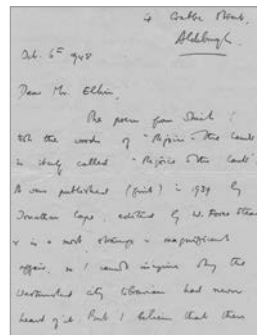 4 Crabbe Street,
Aldeburgh.
Feb. 6th 1948
Dear Mr. Elkin,
The poem from which I
took the words of "Rejoice in the Lamb"
is itself called "Rejoice in the Lamb".
It was published (first) in 1939 by
Jonathan Cape, edited by W. Force Stead
& is a most strange & magnificent
affair, so I can't imagine why the
Westminster city librarian had never
heard of it. But I believe that there